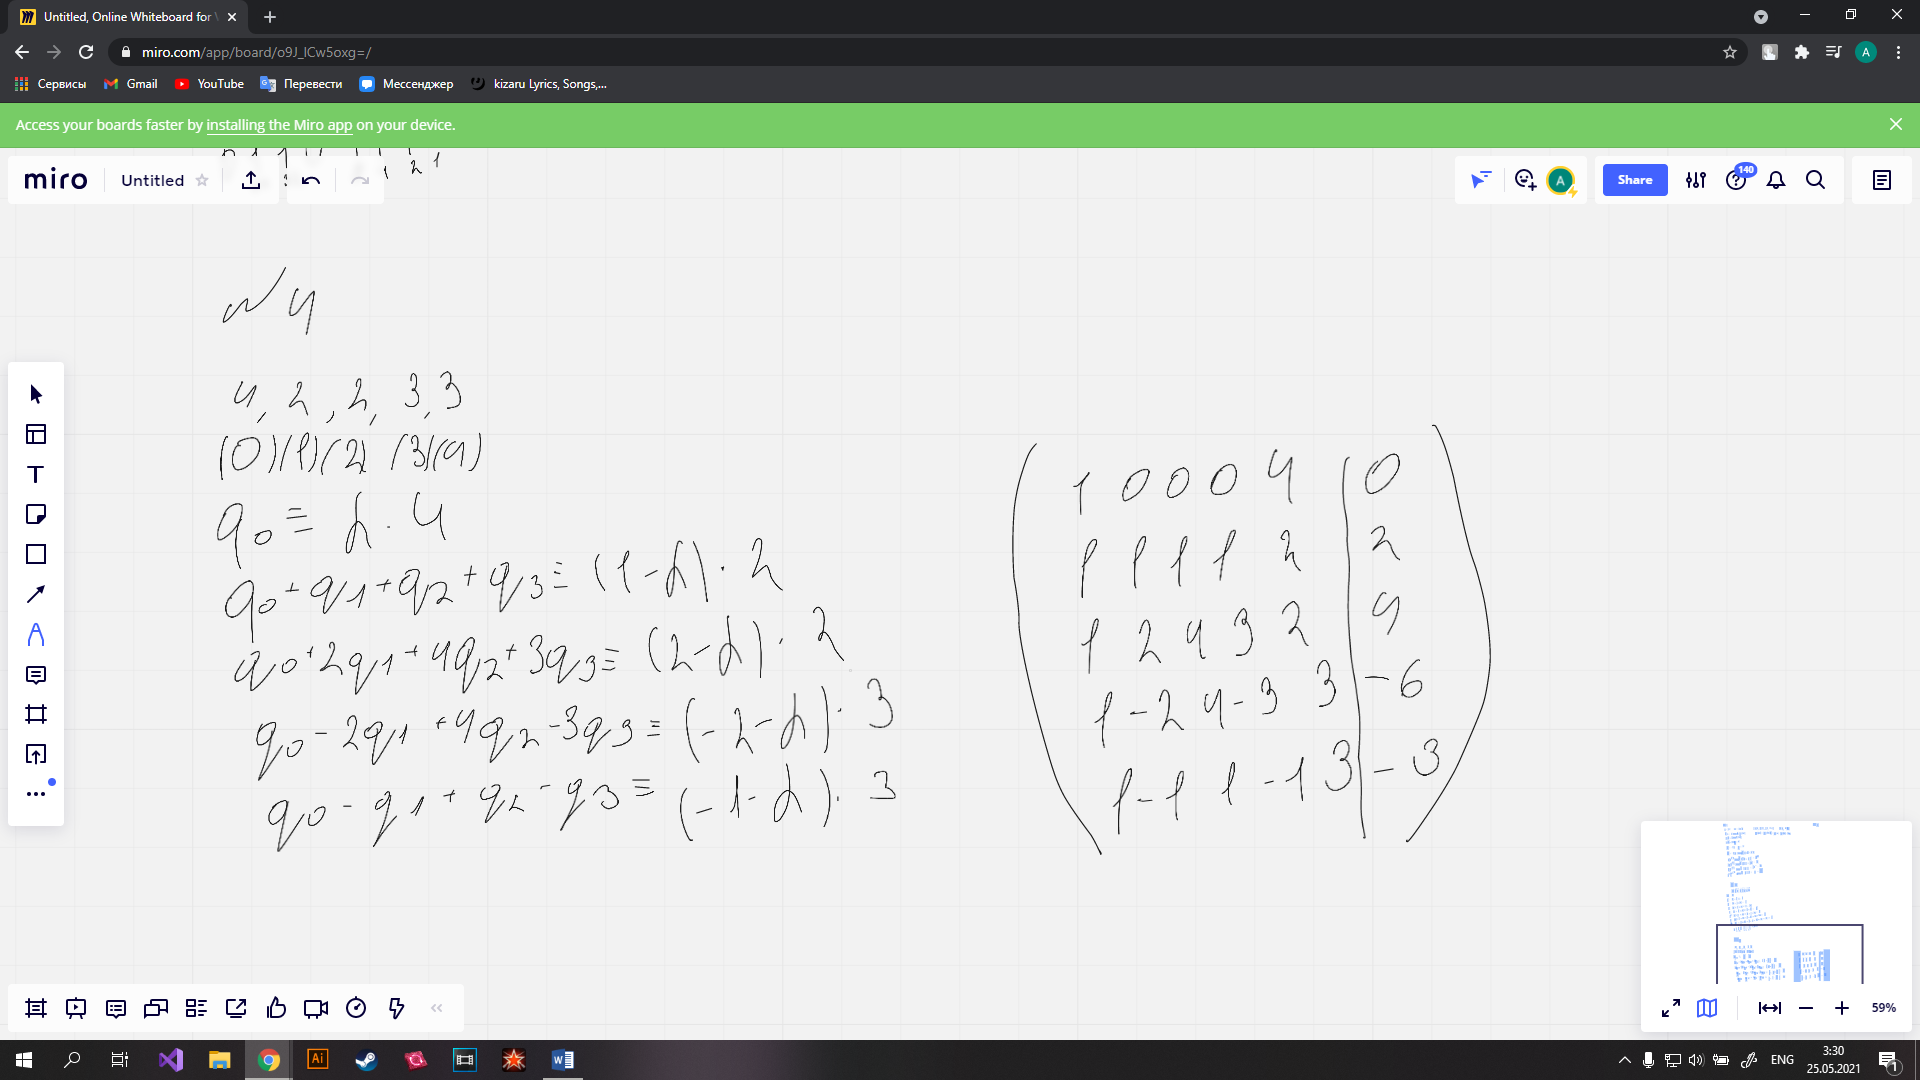 Untitled, Online Whiteboard for
miro.com/app/board/o9J_lCw5oxg=/
A
Сервисы Gmail YouTube Перевести Мессенджер kizaru Lyrics, Songs,...
Access your boards faster by installing the Miro app on your device.
miro Untitled
A Share 140
N 4
4, 2, 2, 3, 3
(0)(1)(2)(3)(4)
q0 ≡ α · 4
q0 + q1 + q2 + q3 ≡ (1-α) · 2
q0 + 2q1 + 4q2 + 3q3 ≡ (2-α) · 2
q0 - 2q1 + 4q2 - 3q3 ≡ (-2-α) · 3
q0 - q1 + q2 - q3 ≡ (-1-α) · 3
1 0 0 0 4 | 0
1 1 1 1 2 | 2
1 2 4 3 2 | 4
1 -2 4 -3 3 | -6
1 -1 1 -1 3 | -3
T
59%
Ai
ENG
3:30
25.05.2021
1